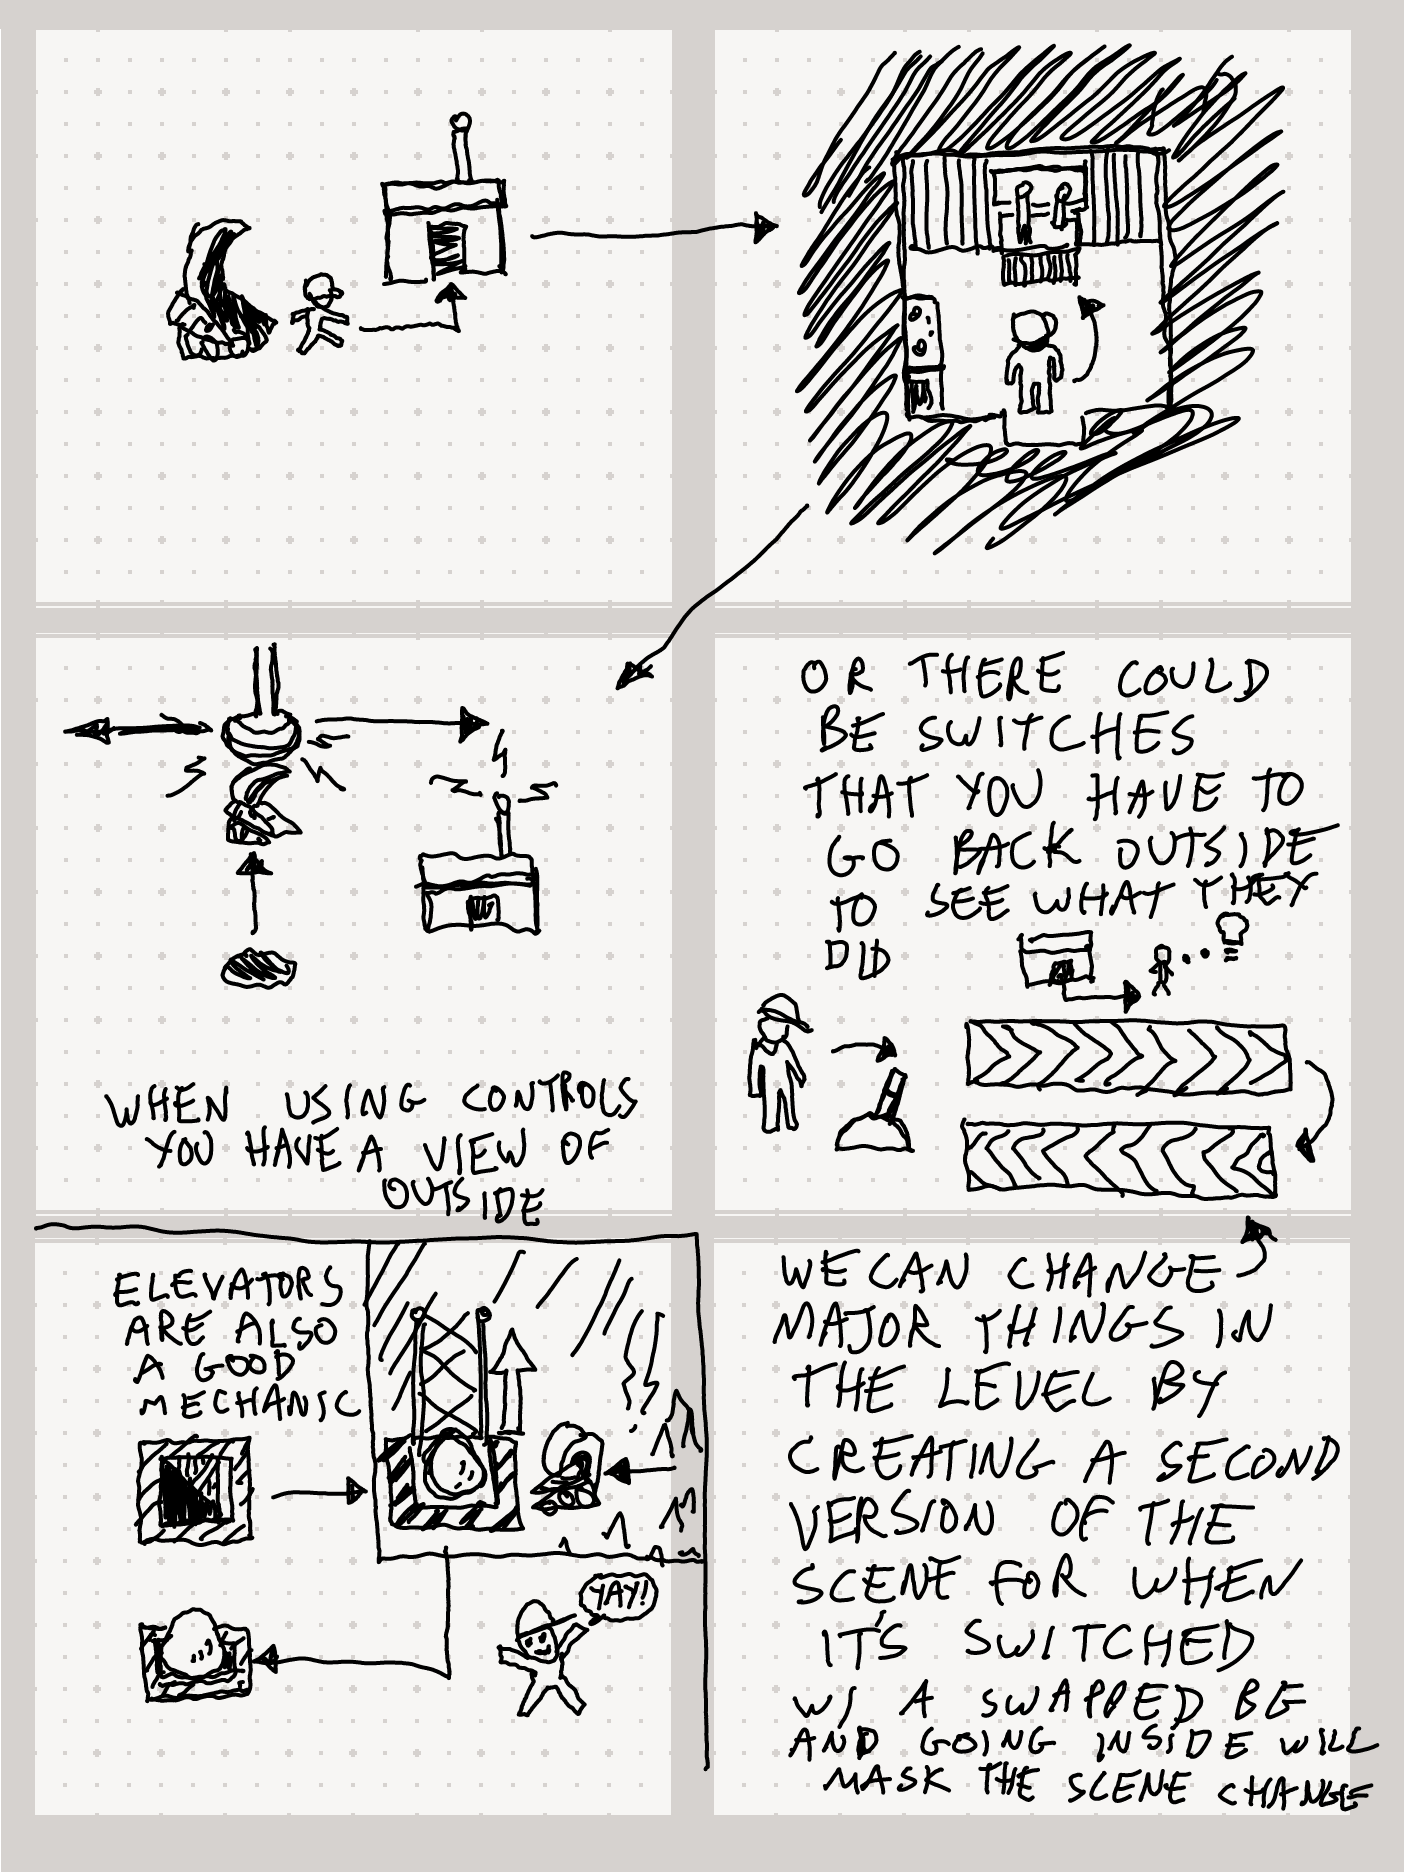 WHEN USING CONTROLS
YOU HAVE A VIEW OF
OUTSIDE
OR THERE COULD
BE SWITCHES
THAT YOU HAVE TO
GO BACK OUTSIDE
TO SEE WHAT THEY
DID
ELEVATORS
ARE ALSO
A GOOD
MECHANIC
YAY!
WE CAN CHANGE
MAJOR THINGS IN
THE LEVEL BY
CREATING A SECOND
VERSION OF THE
SCENE FOR WHEN
IT'S SWITCHED
W/ A SWAPPED BG
AND GOING INSIDE WILL
MASK THE SCENE CHANGE